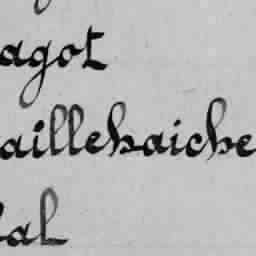 agot
aillehaiche
al